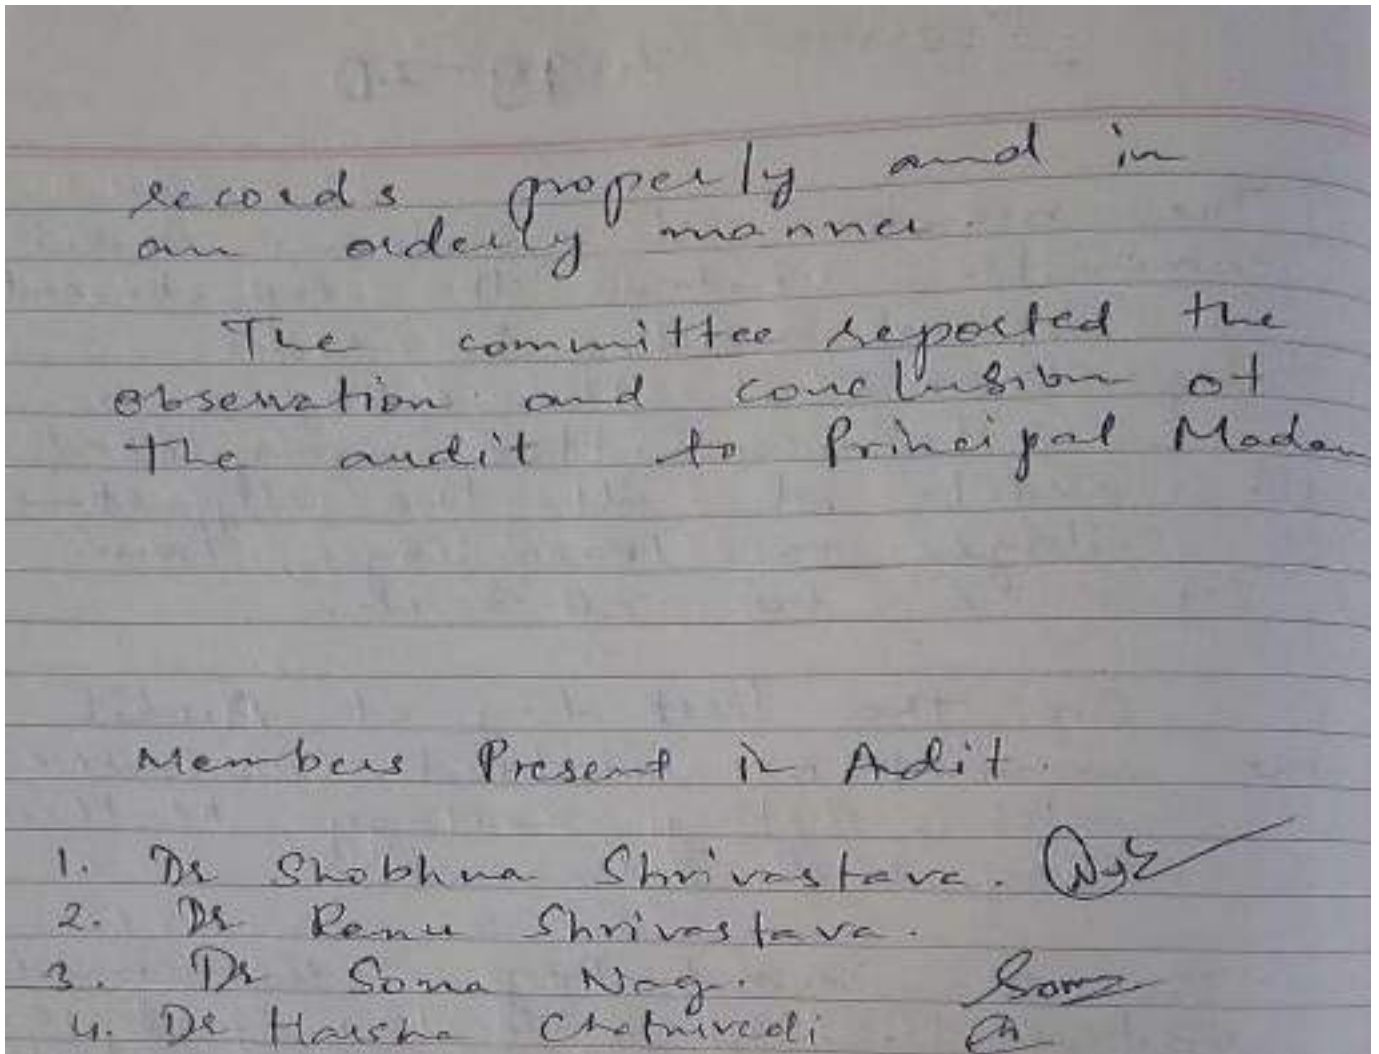 records properly and in
an orderly manner.
The committee reported the
observation and conclusion of
the audit to Principal Madam
Members Present in Audit.
1. Dr Shobhna Shrivastava.
2. Dr Renu Shrivastava.
3. Dr Soma Nag. Soma
4. Dr Harsha Chaturvedi